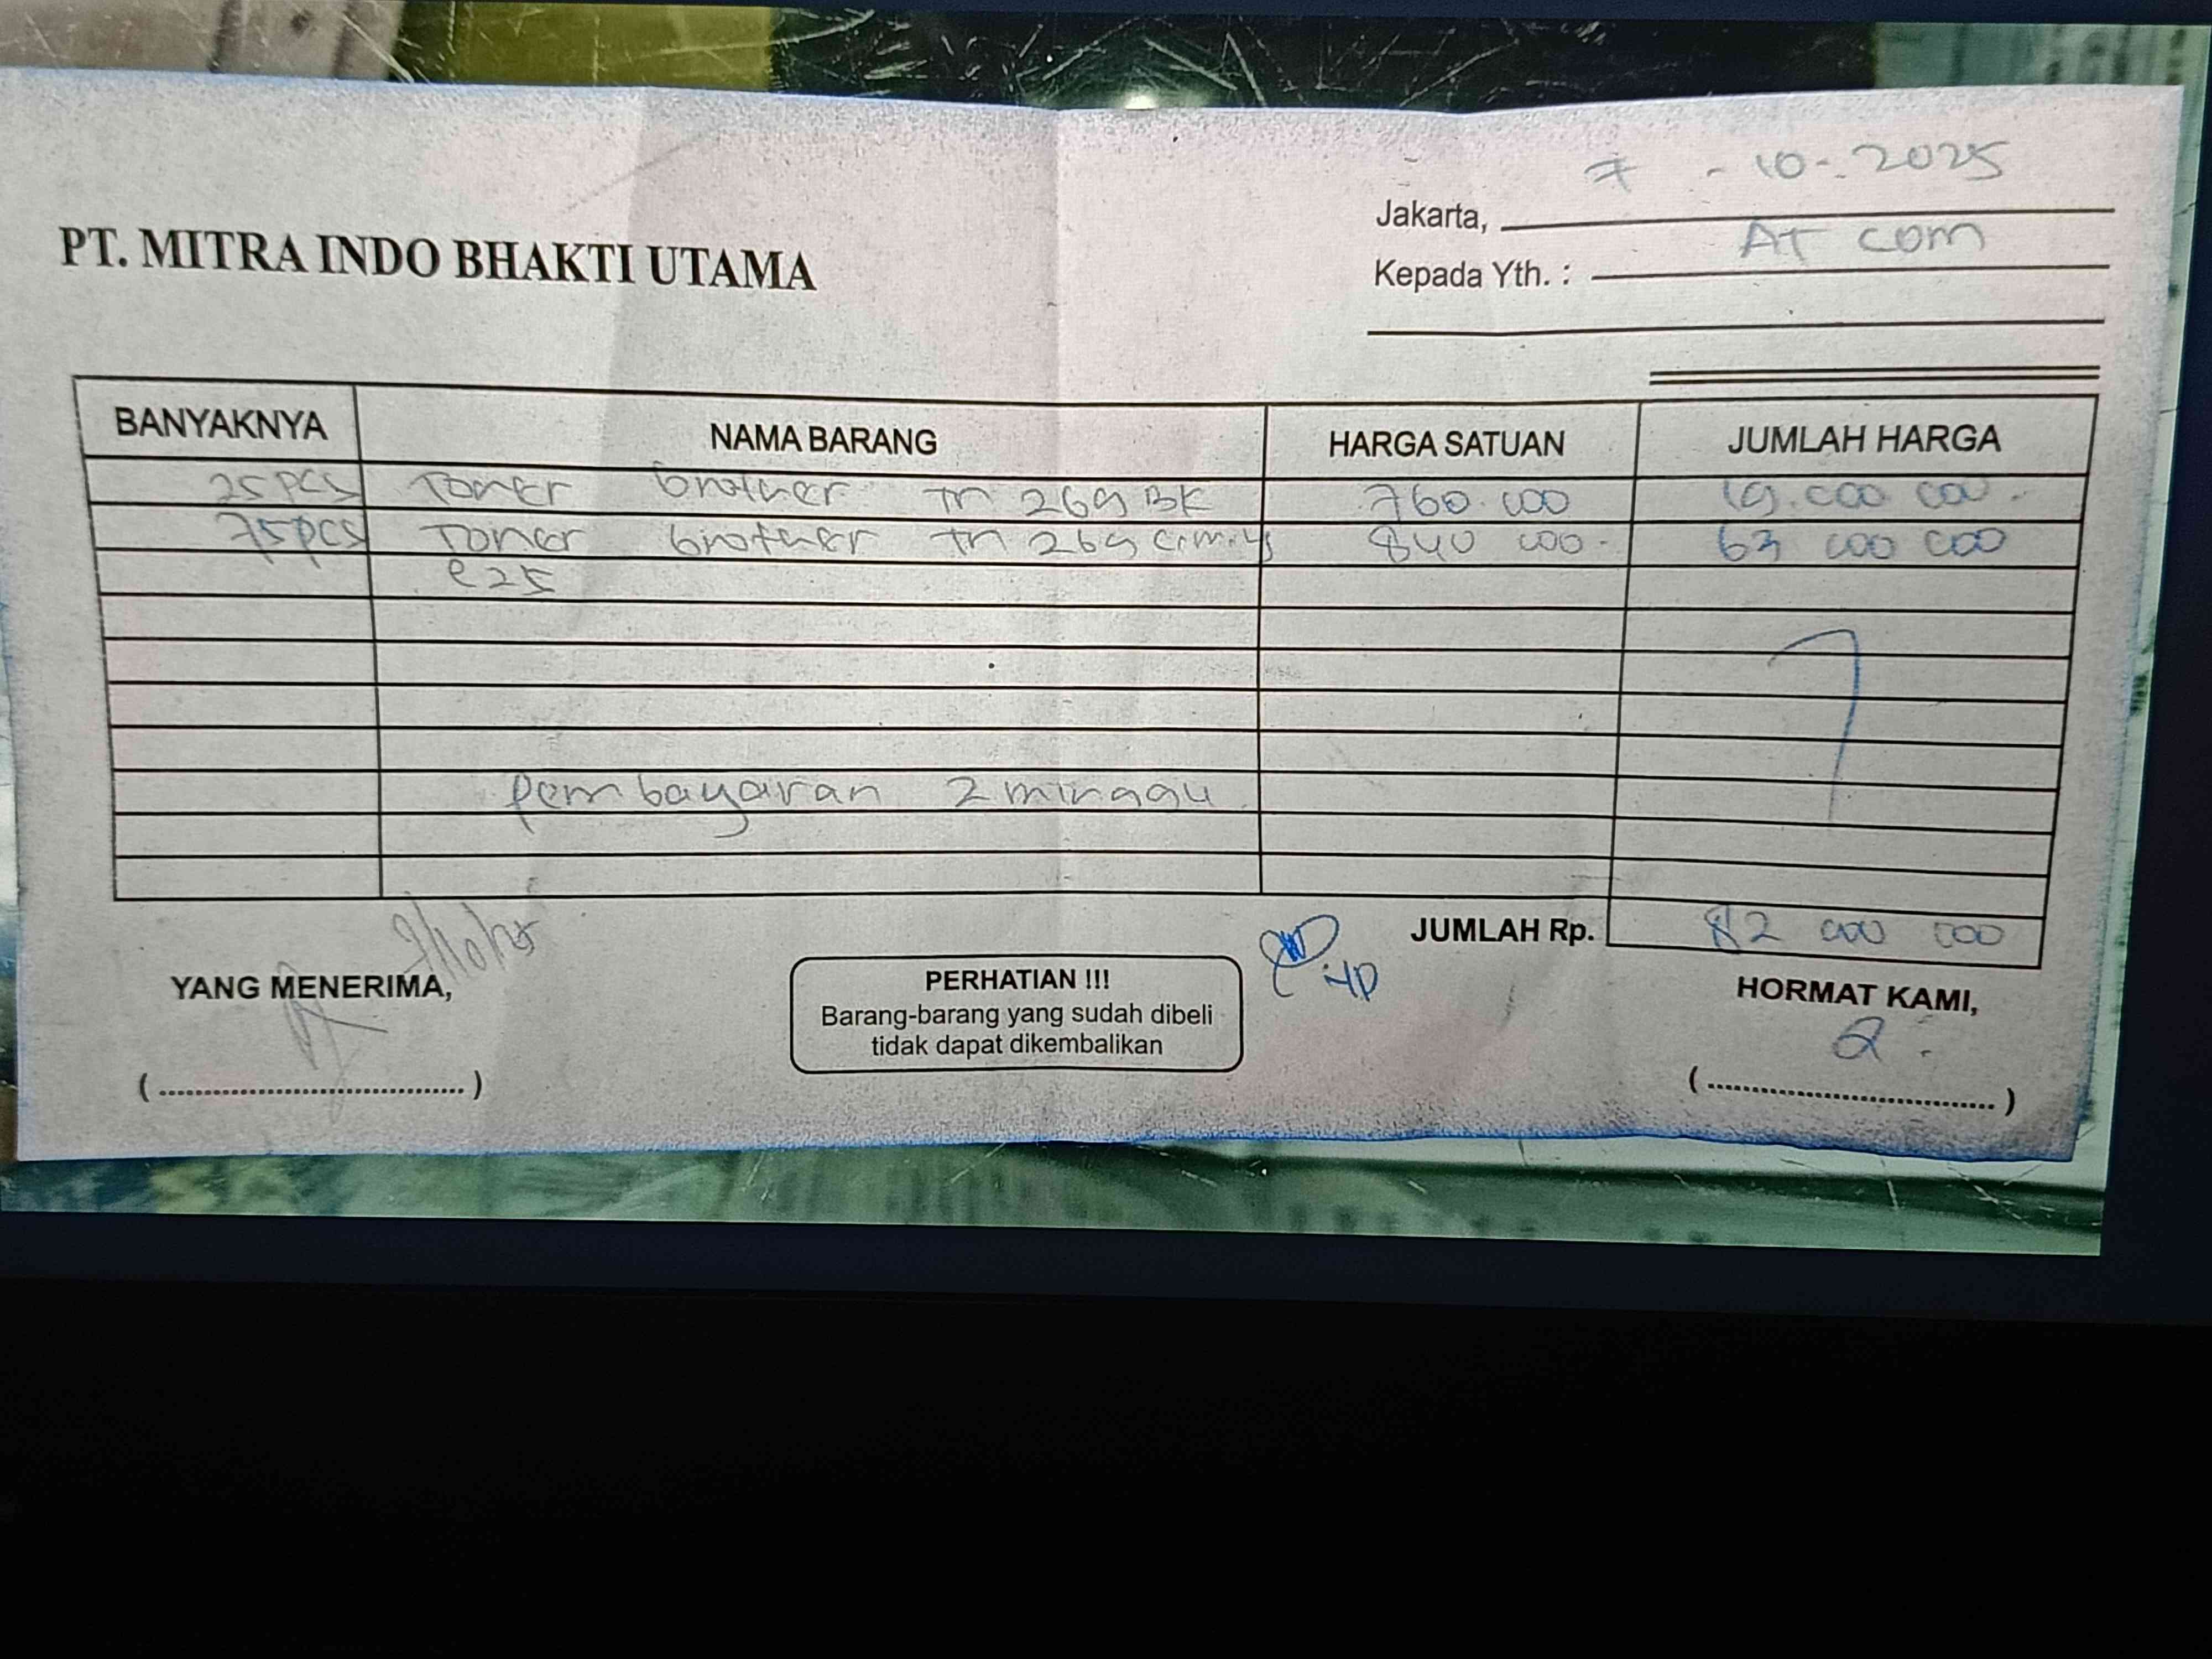 7 - 10 - 2025
Jakarta,
AT com
Kepada Yth. :
PT. MITRA INDO BHAKTI UTAMA
BANYAKNYA NAMA BARANG HARGA SATUAN JUMLAH HARGA
25 pcs Toner brother tn 269 BK 760.000 19.000 000.
75 pcs Toner brother tn 269 c.m.y 840 000. 63 000 000
@ 25
pembayaran 2 minggu
JUMLAH Rp. 82 000 000
YANG MENERIMA,
PERHATIAN !!!
Barang-barang yang sudah dibeli
tidak dapat dikembalikan
HORMAT KAMI,
( ........................ )
( ........................ )